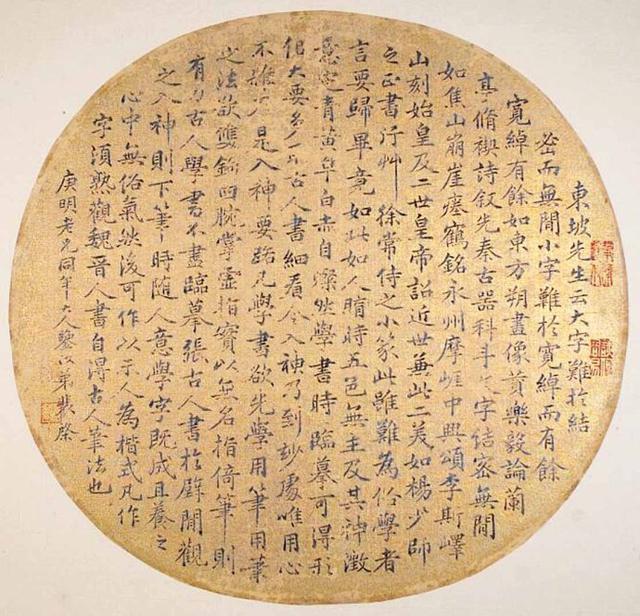 東坡先生云大字難於結
密而無間小字難於寬綽而有餘
寬綽有餘如東方朔畫像贊樂毅論蘭
亭脩禊詩敘先秦古器科斗文字結密無間
如焦山崩崖瘞鶴銘永州摩崖中興頌李斯嶧
山刻始皇及二世皇帝詔近世兼此二美如楊少師
之正書行艸徐常侍之小篆此雖難為俗學者
言要歸畢竟如此如人暗時五色無主及其神澂
意定青黃皁白赤自燦然學書時臨摹可得形
似大要多取古人書細看令入神乃到妙處唯用心
不雜乃是入神要路凡學書欲先學用筆用筆
之法欲雙鉤回腕掌虛指實以無名指倚筆則
有力古人學書不盡臨摹張古人書於壁間觀
之入神則下筆時隨人意學字既成且養之
心中無俗氣然後可作以示人為楷式凡作
字須熟觀魏晉人書自得古人筆法也
庚明老兄同年大人鑒 弟裴